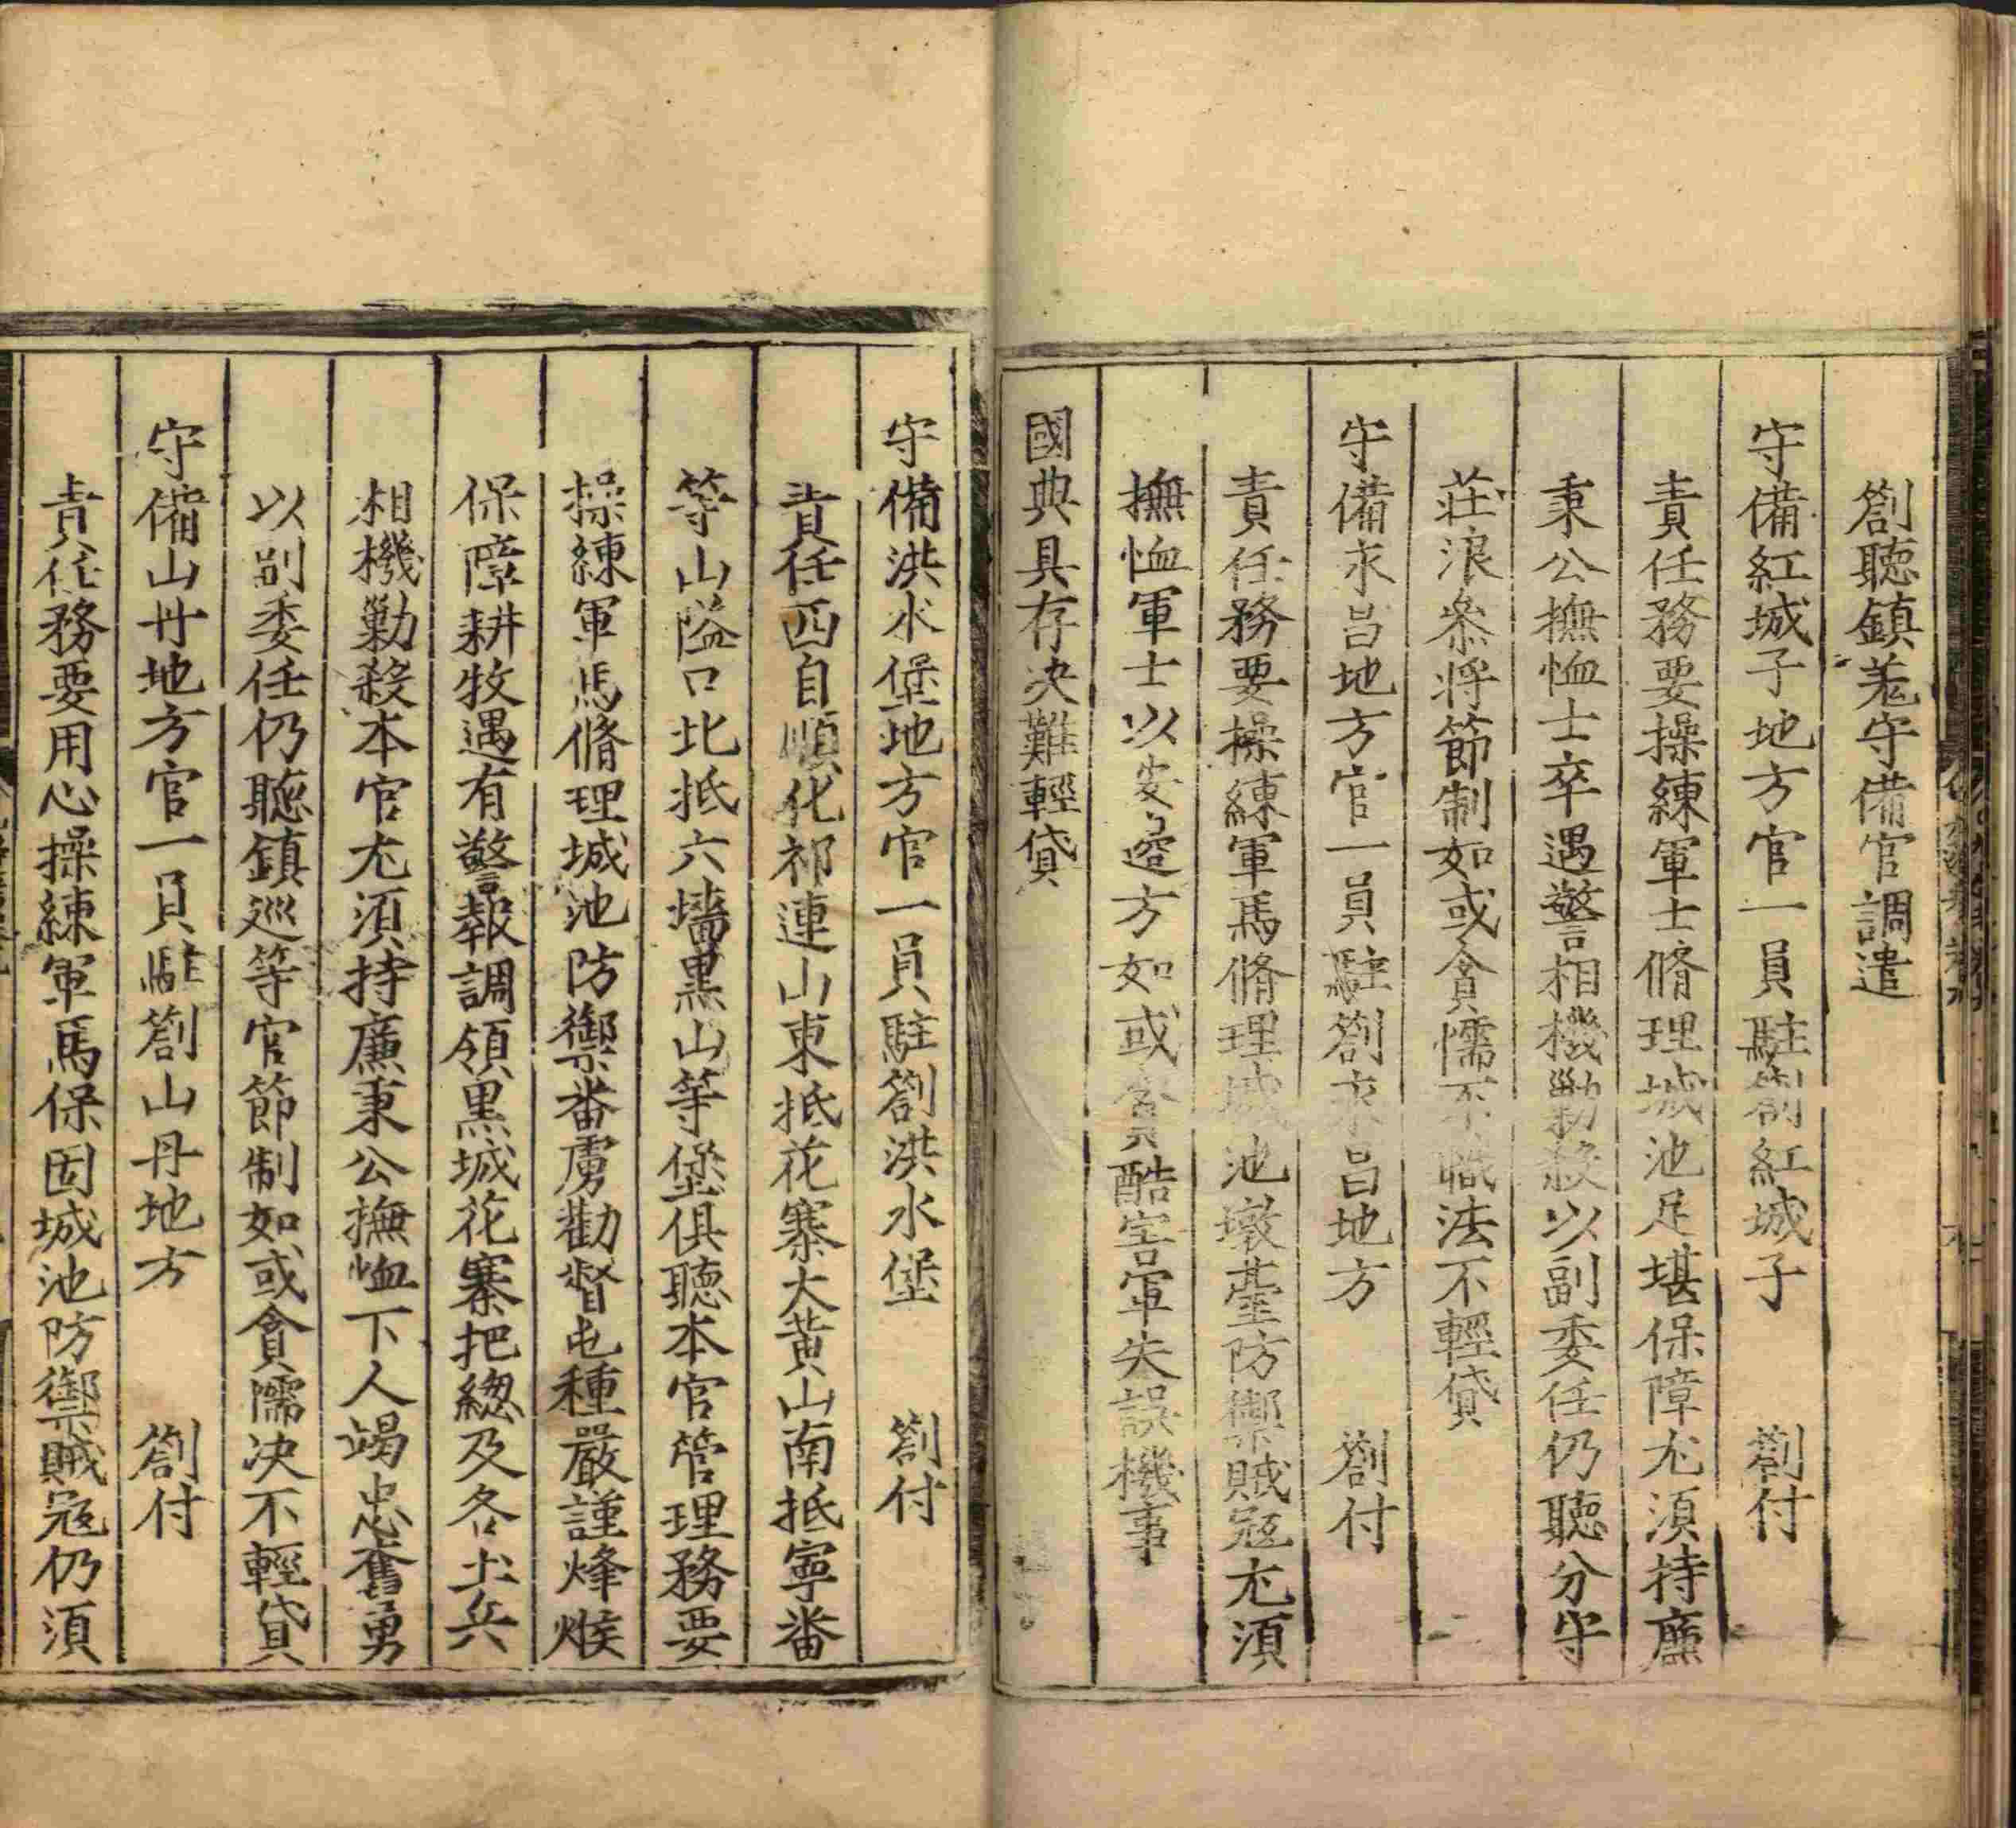 劄聽鎮羗守備官調遣
守備紅城子地方官一員駐劄紅城子　劄付
責任務要操練軍士脩理城池足堪保障尤須持廉
秉公撫恤士卒遇警相機勦殺以副委任仍聽分守
莊浪叅將節制如或貪懦不職法不輕貸
守備永昌地方官一員駐劄永昌地方　劄付
責任務要操練軍馬脩理城池墩臺防禦賊寇尤須
撫恤軍士以安邉方如或貪酷害軍失誤機事
國典具存决難輕貸
守備洪水堡地方官一員駐劄洪水堡　劄付
責任西自順化祁連山東抵花寨大黄山南抵寧番
等山隘口北抵六墻黒山等堡俱聽本官管理務要
操練軍馬脩理城池防禦番虜勸督屯種嚴謹烽堠
保障耕牧遇有警報調領黒城花寨把緫及各土兵
相機勦殺本官尤須持廉秉公撫恤下人竭忠奮勇
以副委任仍聽鎮巡等官節制如或貪懦决不輕貸
守備山丹地方官一員駐劄山丹地方　劄付
責任務要用心操練軍馬保固城池防禦賊寇仍須